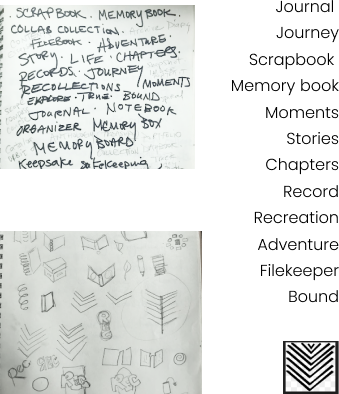 SCRAPBOOK. MEMORYBOOK.
COLLAB COLLECTION.
FILEBOOK. ADVENTURE.
STORY. LIFE. CHAPTERS.
RECORDS. JOURNEY
RECOLLECTIONS. MOMENTS
EXPLORE. TRUE. BOUND
JOURNAL. NOTEBOOK
ORGANIZER MEMORY BOX
MEMORY BOARD
Keepsake Safekeeping
Rec
Journal
Journey
Scrapbook
Memory book
Moments
Stories
Chapters
Record
Recreation
Adventure
Filekeeper
Bound